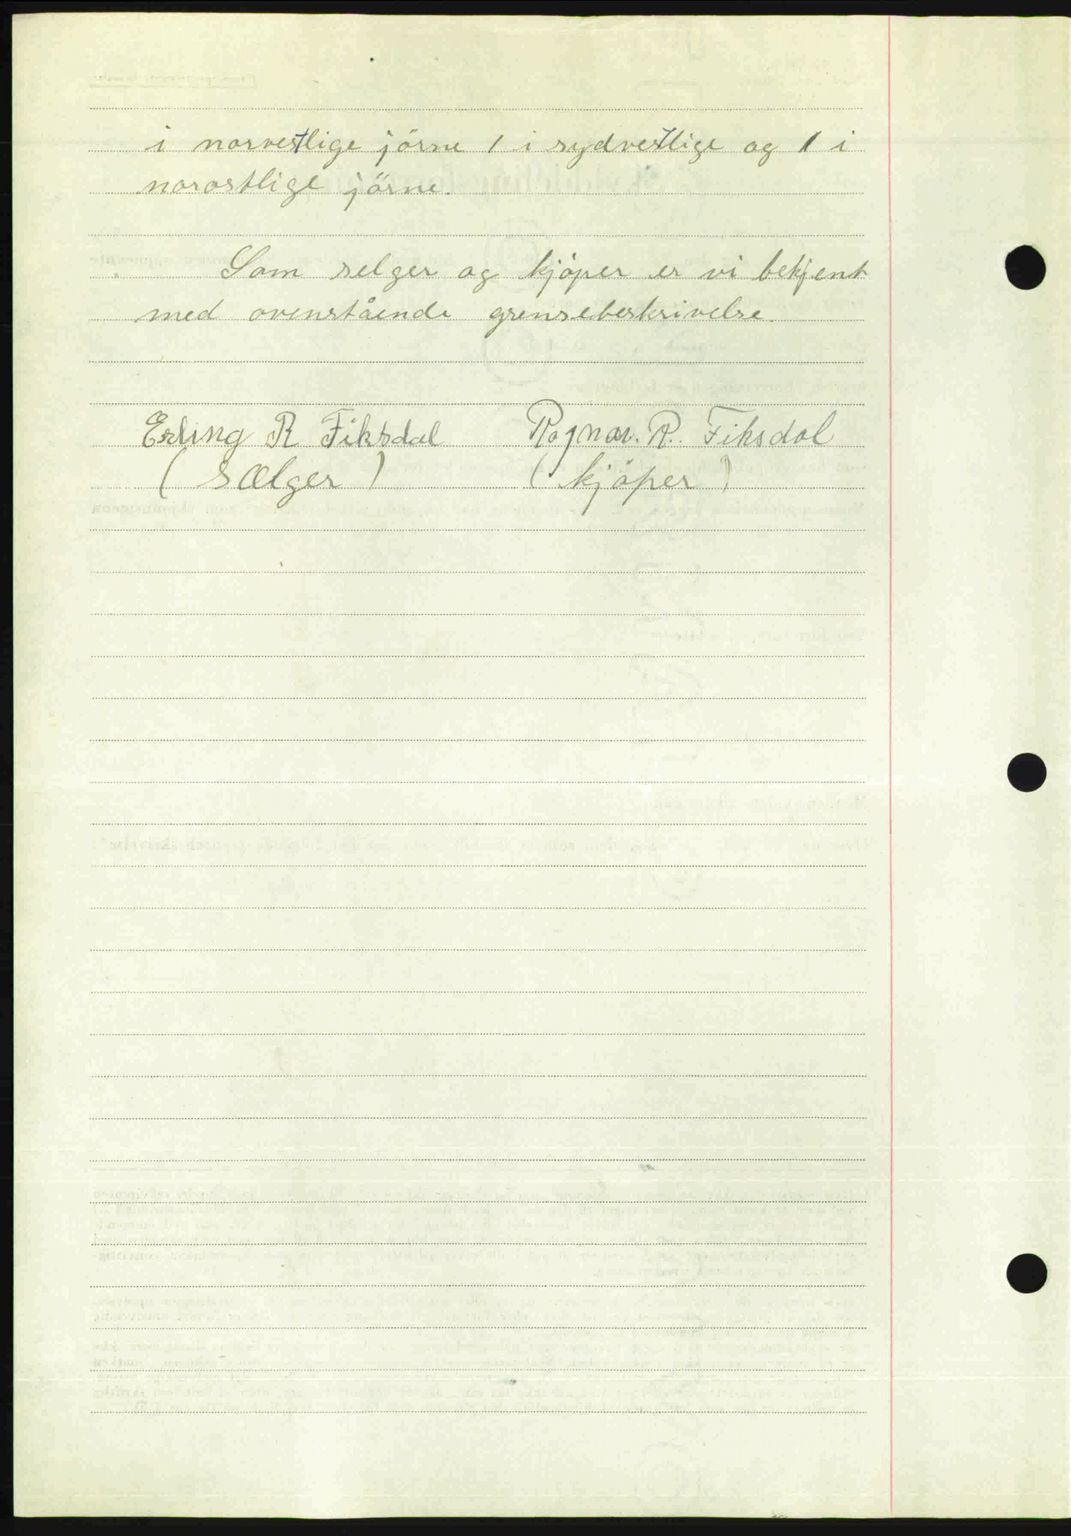 i norvestlige jörne 1 i sydvestlige og 1 i
norostlige jörne.
Som selger og kjöper er vi bekjent
med ovenstående grensebeskrivelse.
Erling R Fiksdal Ragnar. R. Fiksdal
( Sælger ) ( kjöper )